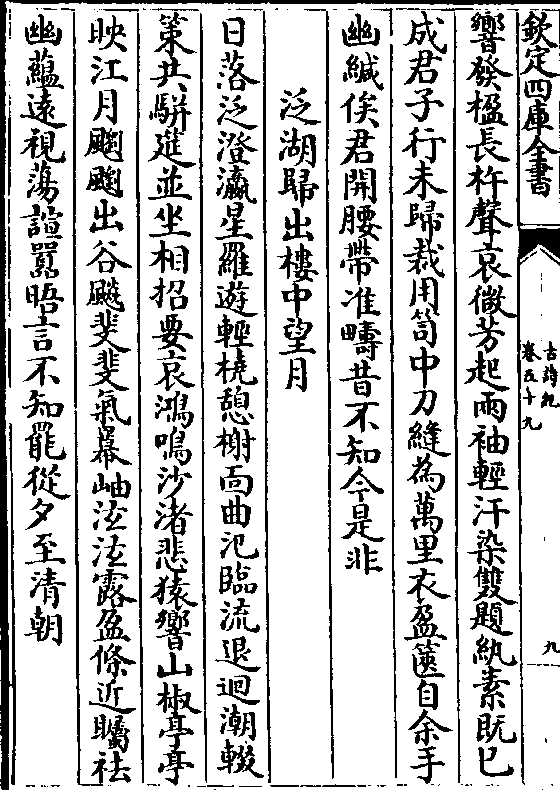 欽定四庫全書
古詩紀
卷五十九
九
響發楹長杵聲哀微芳起兩袖輕汗染雙題紈素既已
成君子行未歸裁用笥中刀縫為萬里衣盈篋自余手
幽緘俟君開腰帶准疇昔不知今是非
泛湖歸出樓中望月
日落泛澄瀛星羅遊輕橈憩榭面曲汜臨流退迴潮輟
策共駢筵並坐相招要哀鴻鳴沙渚悲猿響山椒亭亭
映江月飀飀出谷飇斐斐氣幕岫泫泫露盈條近矚祛
幽蘊遠視蕩諠囂晤言不知罷從夕至清朝